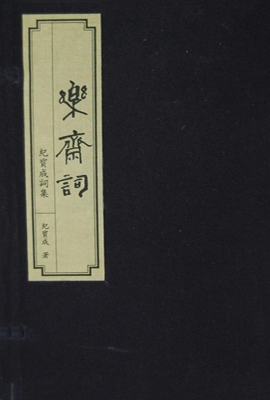 樂齋詞
紀寶成詞集
紀寶成 著